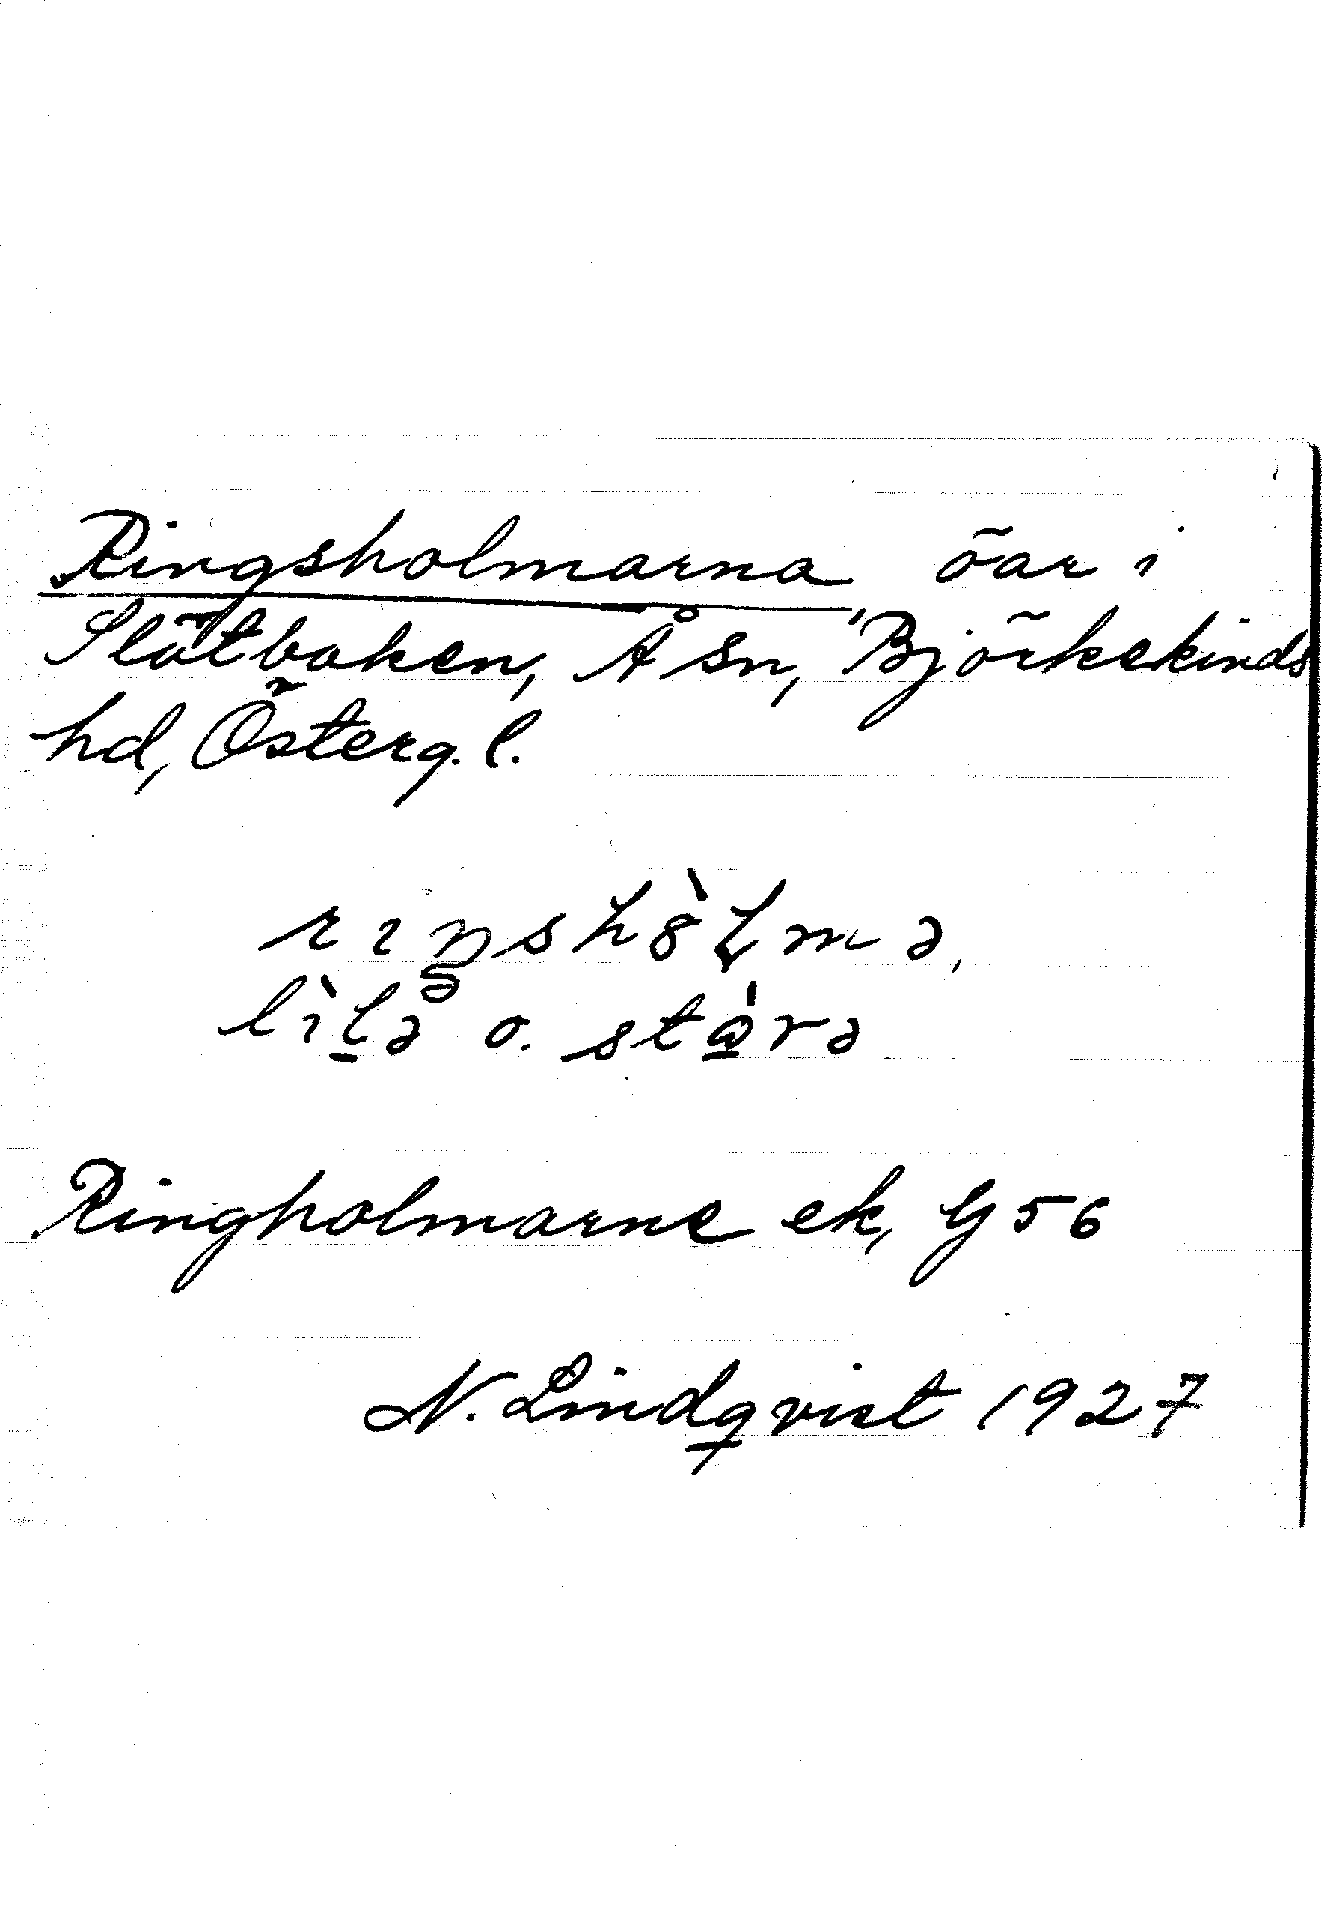 Ringsholmarna öar i
Slätbaken, Å sn, Björkekinds
hd, Österg. l.
rıŋshòlmə,
lìlə o. stɷ̀rə
Ringholmarne ek, G 56
N. Lindqvist 1927